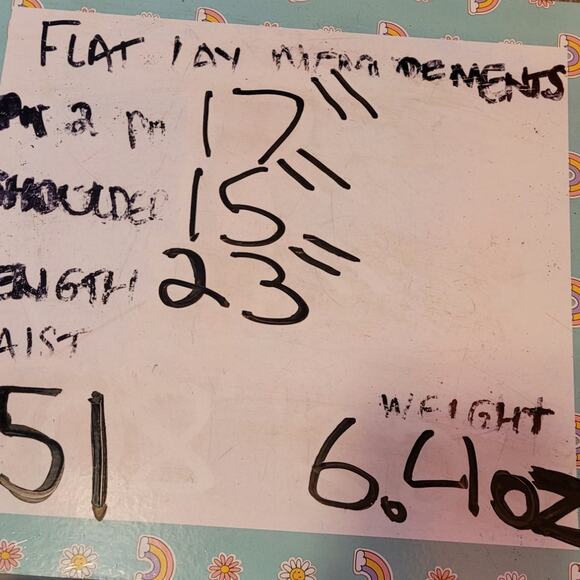 FLAT LAY MEASUREMENTS
2 17"
SHOULDER 15"
ENGTH 23"
AIST
WEIGHT
51 6.4oz